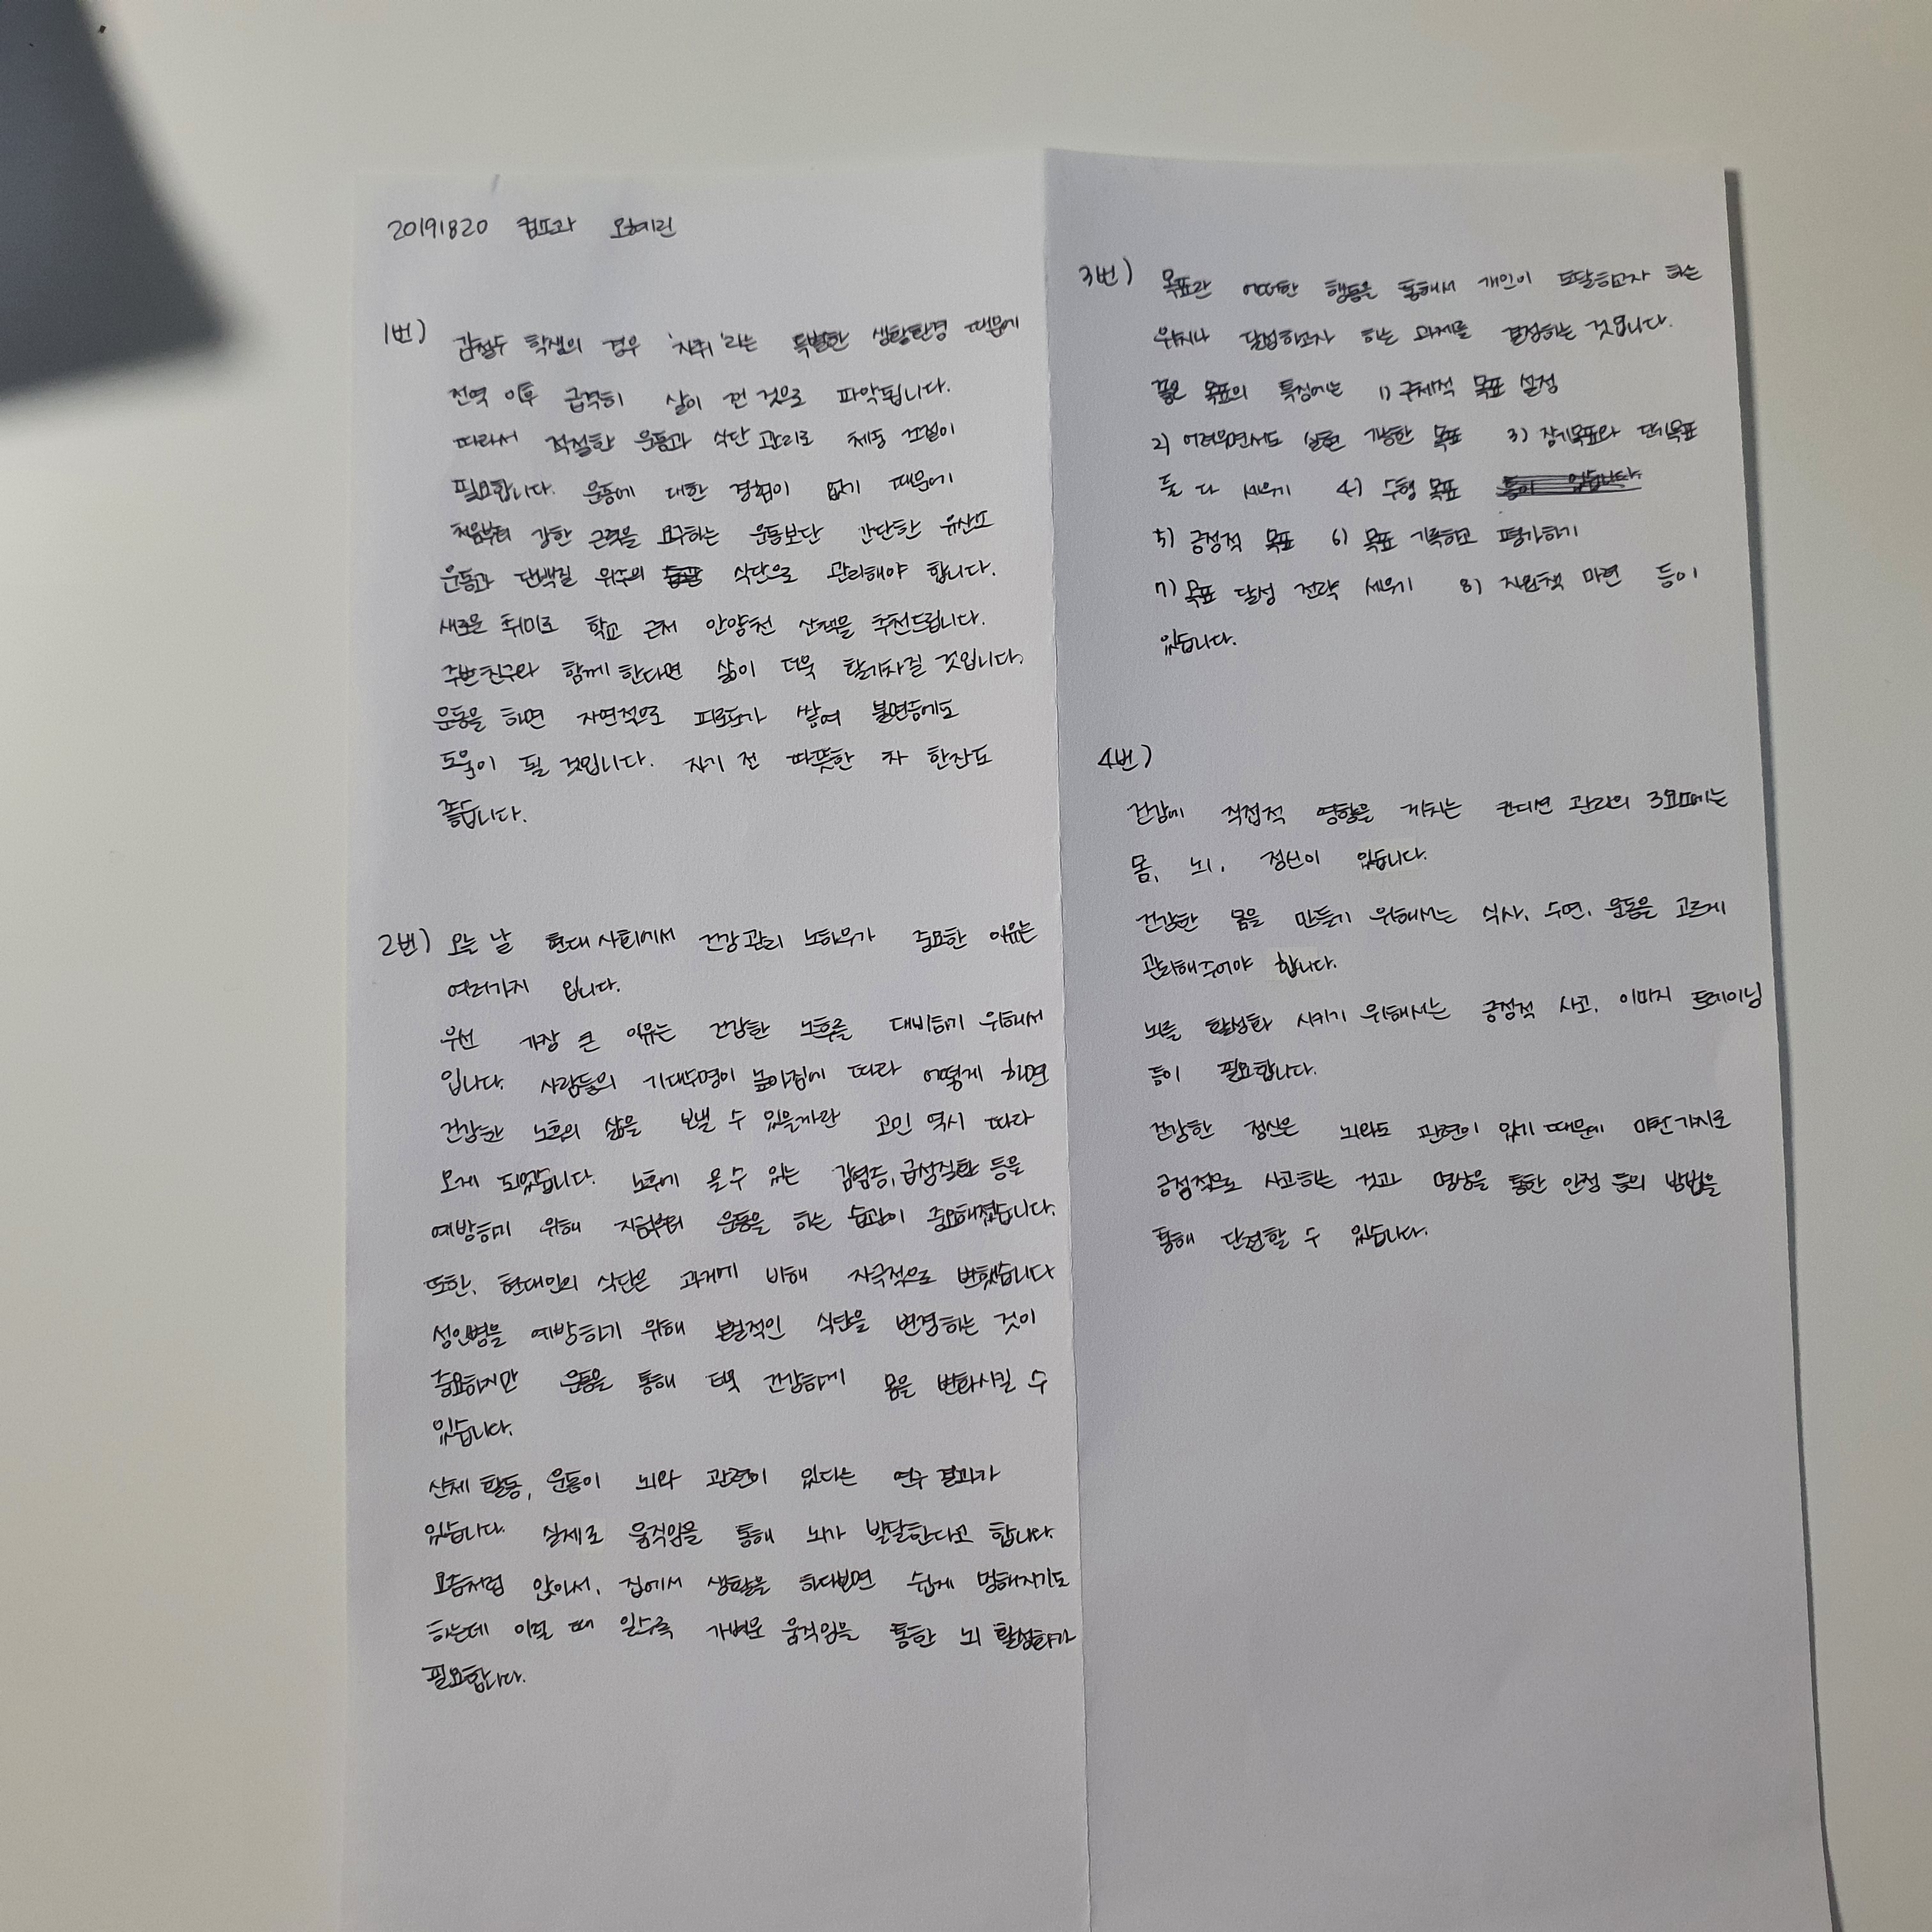 20191820 컴프과 오혜린
1번) 김철수 학생의 경우 '자취'라는 특별한 생활환경 때문에
전역 이후 급격히 살이 찐 것으로 파악됩니다.
따라서 적절한 운동과 식단 관리로 체중 조절이
필요합니다. 운동에 대한 경험이 없기 때문에
처음부터 강한 근력을 요구하는 운동보단 간단한 유산소
운동과 단백질 위주의 식단으로 관리해야 합니다.
새로운 취미로 학교 근처 안양천 산책을 추천드립니다.
주변친구와 함께 한다면 삶이 더욱 활기차질 것입니다.
운동을 하면 자연적으로 피로도가 쌓여 불면증에도
도움이 될 것입니다. 자기 전 따뜻한 차 한잔도
좋습니다.
2번) 오늘 날 현대 사회에서 건강 관리 노하우가 중요한 이유는
여러가지 입니다.
우선 가장 큰 이유는 건강한 노후를 대비하기 위해서
입니다. 사람들의 기대수명이 높아짐에 따라 어떻게 하면
건강한 노후의 삶을 보낼 수 있을까란 고민 역시 따라
오게 되었습니다. 노후에 올 수 있는 감염증, 급성질환 등을
예방하기 위해 지금부터 운동을 하는 습관이 중요해졌습니다.
또한, 현대인의 식단은 과거에 비해 자극적으로 변했습니다
성인병을 예방하기 위해 본질적인 식단을 변경하는 것이
중요하지만 운동을 통해 더욱 건강하게 몸을 변화시킬 수
있습니다.
신체 활동, 운동이 뇌와 관련이 있다는 연구 결과가
있습니다. 실제로 움직임을 통해 뇌가 발달한다고 합니다.
요즘처럼 앉아서, 집에서 생활을 하다보면 쉽게 멍해지기도
하는데 이럴 때 일수록 가벼운 움직임을 통한 뇌 활성화가
필요합니다.
3번) 목표란 어떠한 행동을 통해서 개인이 도달하고자 하는
위치나 달성하고자 하는 과제를 결정하는 것입니다.
좋은 목표의 특징에는 1) 구체적 목표 설정
2) 어려우면서도 실현 가능한 목표 3) 장기목표와 단기목표
둘 다 세우기 4) 수행 목표 등이 있습니다.
5) 긍정적 목표 6) 목표 기록하고 평가하기
7) 목표 달성 전략 세우기 8) 지원책 마련 등이
있습니다.
4번)
건강에 직접적 영향을 끼치는 컨디션 관리의 3요소에는
몸, 뇌, 정신이 있습니다.
건강한 몸을 만들기 위해서는 식사, 수면, 운동을 고르게
관리해주어야 합니다.
뇌를 활성화 시키기 위해서는 긍정적 사고, 이미지 트레이닝
등이 필요합니다.
건강한 정신은 뇌와도 관련이 있기 때문에 마찬가지로
긍정적으로 사고하는 것과 명상을 통한 안정 등의 방법을
통해 단련할 수 있습니다.